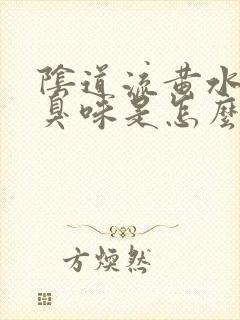 陰道流黃水
臭味是怎麼
方煥然